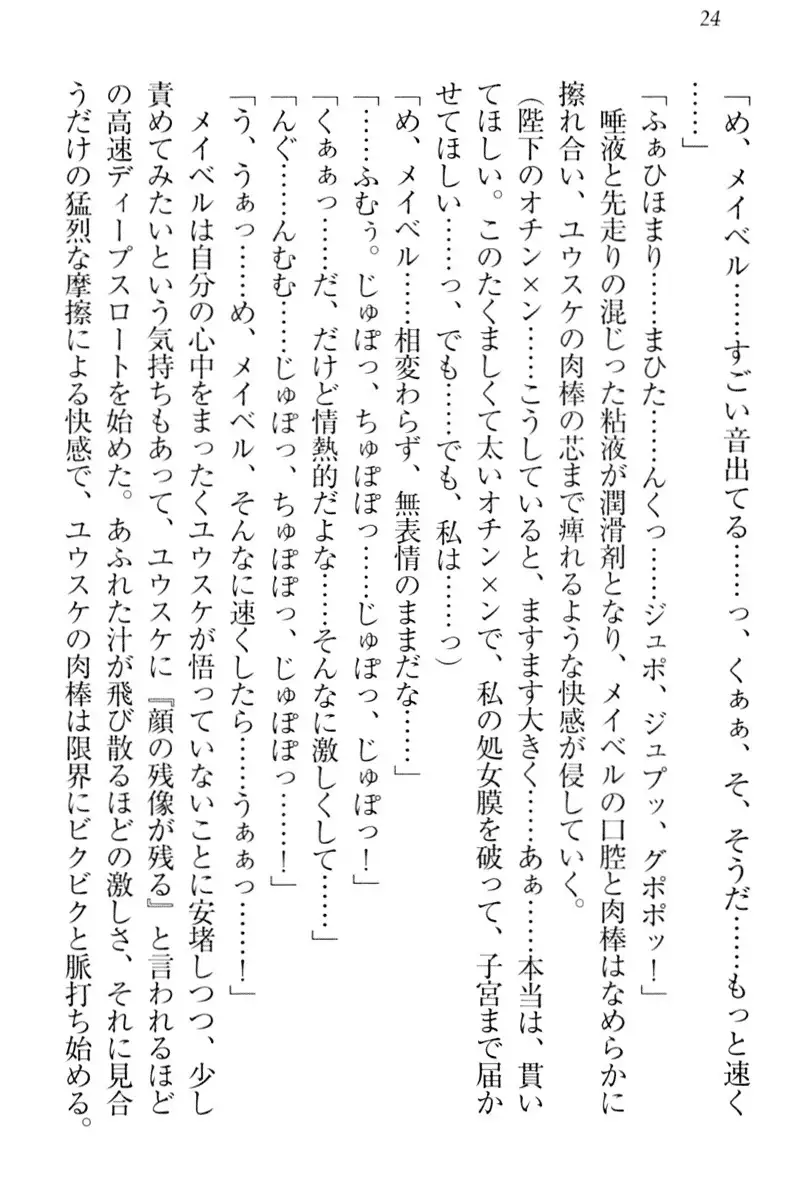 24
「め、メイベル……すごい音出てる……っ、くぁぁ、そ、そうだ……もっと速く
……」
「ふぁひほまり……まひた……んくっ……ジュポ、ジュプッ、グポポッ！」
　唾液と先走りの混じった粘液が潤滑剤となり、メイベルの口腔と肉棒はなめらかに
擦れ合い、ユウスケの肉棒の芯まで痺れるような快感が侵していく。
（陛下のオチン×ン……こうしていると、ますます大きく……あぁ……本当は、貫い
てほしい。このたくましくて太いオチン×ンで、私の処女膜を破って、子宮まで届か
せてほしい……っ、でも……でも、私は……っ）
「め、メイベル……相変わらず、無表情のままだな……」
「……ふむぅ。じゅぽっ、ちゅぽぽっ……じゅぽっ、じゅぽっ！」
「くぁぁっ……だ、だけど情熱的だよな……そんなに激しくして……」
「んぐ……んむむ……じゅぽっ、ちゅぽぽっ、じゅぽぽっ……！」
「う、うぁっ……め、メイベル、そんなに速くしたら……うぁぁっ……！」
　メイベルは自分の心中をまったくユウスケが悟っていないことに安堵しつつ、少し
責めてみたいという気持ちもあって、ユウスケに『顔の残像が残る』と言われるほど
の高速ディープスロートを始めた。あふれた汁が飛び散るほどの激しさ、それに見合
うだけの猛烈な摩擦による快感で、ユウスケの肉棒は限界にビクビクと脈打ち始める。